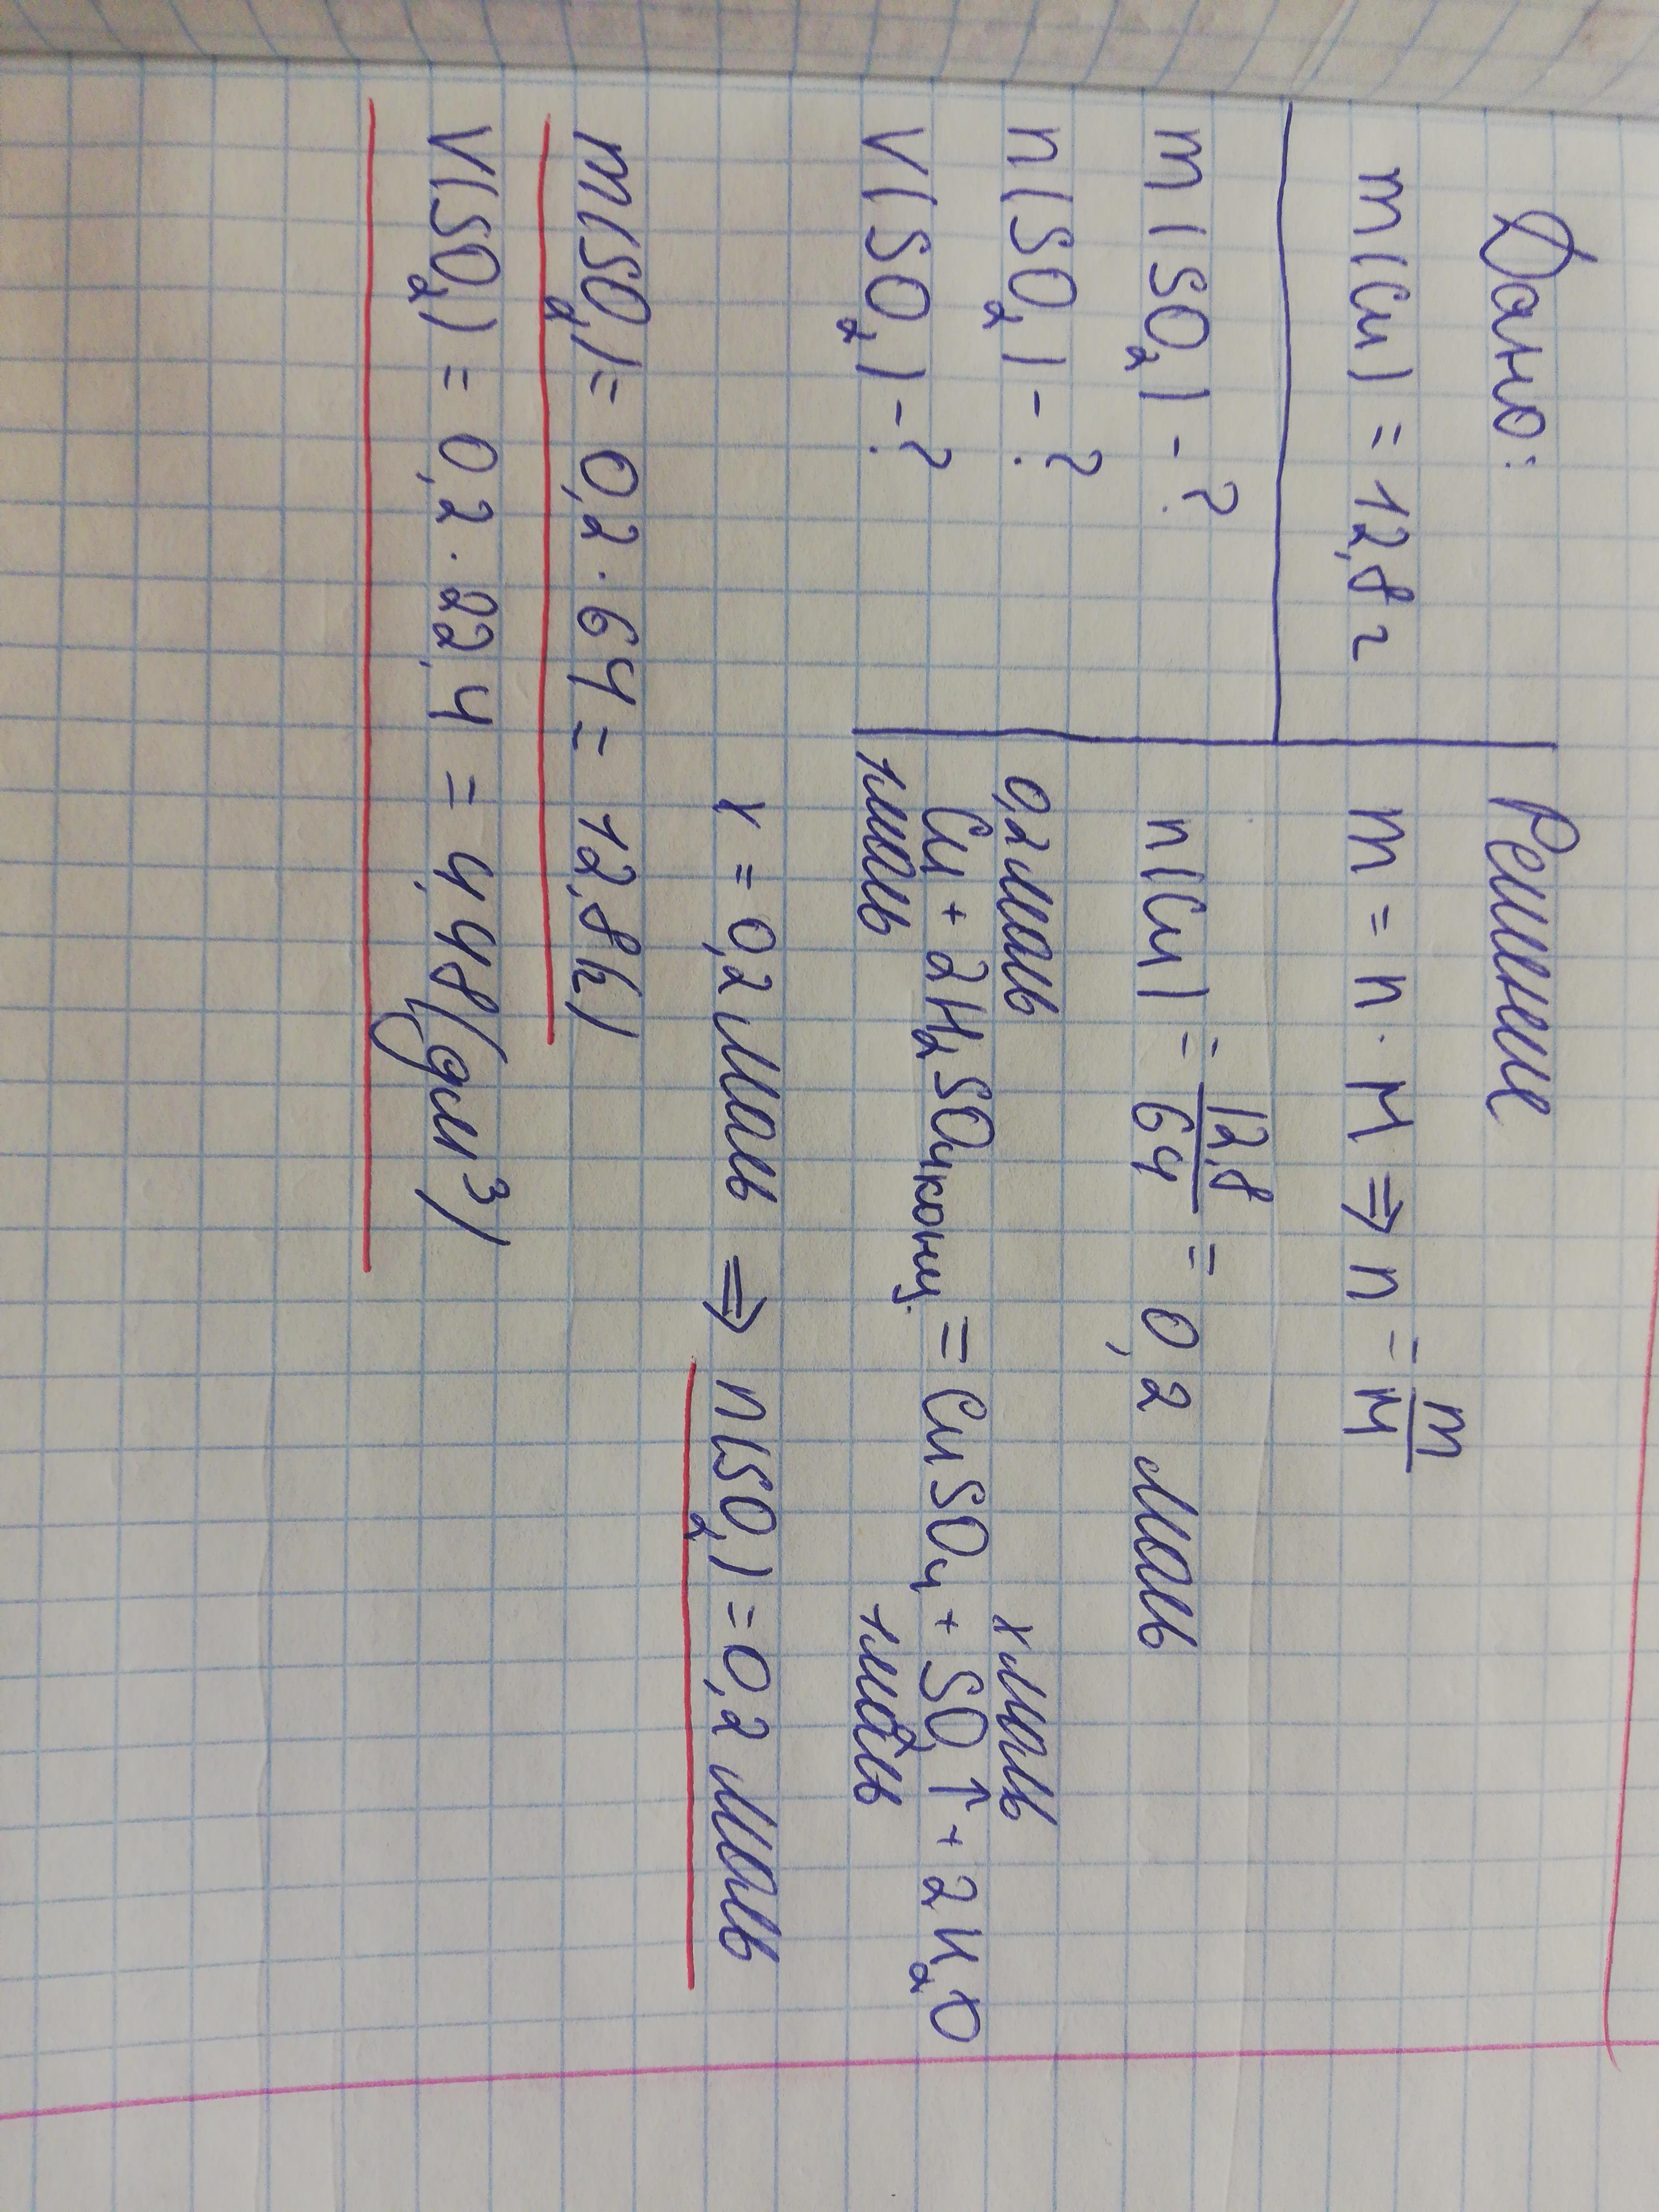 Дано:
m(Cu) = 12,8 г
m(SO₂) - ?
n(SO₂) - ?
V(SO₂) - ?
Решение
m = n · M ⇒ n = m/M
n(Cu) = 12,8/64 = 0,2 моль
0,2 моль x моль
Cu + 2H₂SO₄конц. = CuSO₄ + SO₂↑ + 2H₂O
1моль 1моль
x = 0,2 моль ⇒ n(SO₂) = 0,2 моль
m(SO₂) = 0,2 · 64 = 12,8(г)
V(SO₂) = 0,2 · 22,4 = 4,48(дм³)